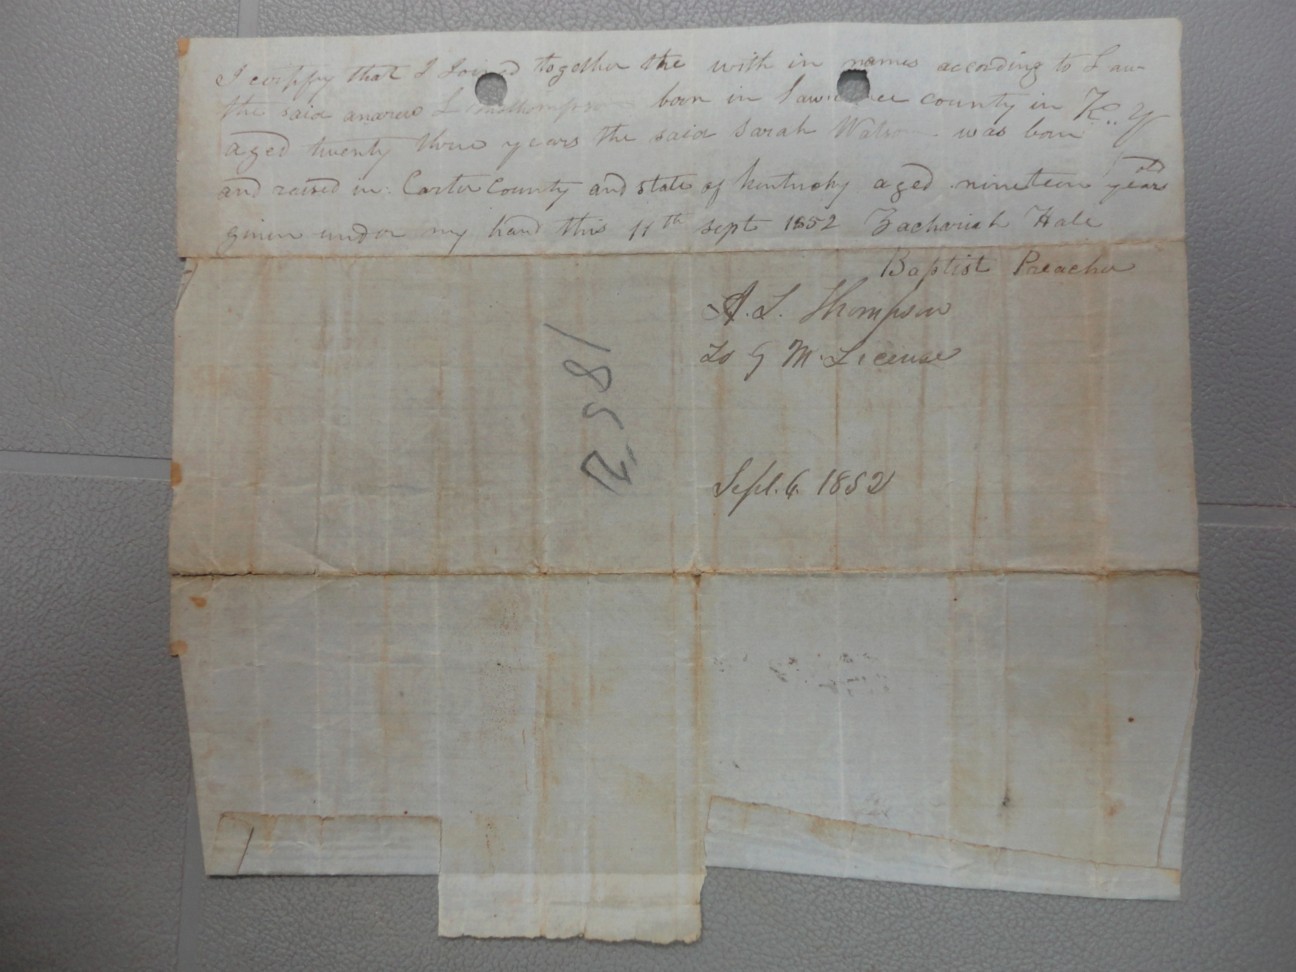 I certify that I Joined together the with in names according to Law
the said andrew L Thompson born in Lawrence county in K.. y
aged twenty three years the said Sarah Watson was born
and raised in Carter County and state of kentucky aged nineteen years old
given under my hand this 11th sept 1852 Zachariah Hale
Baptist Preacher
A. L. Thompson
To M License
1852
Sept. 6. 1852